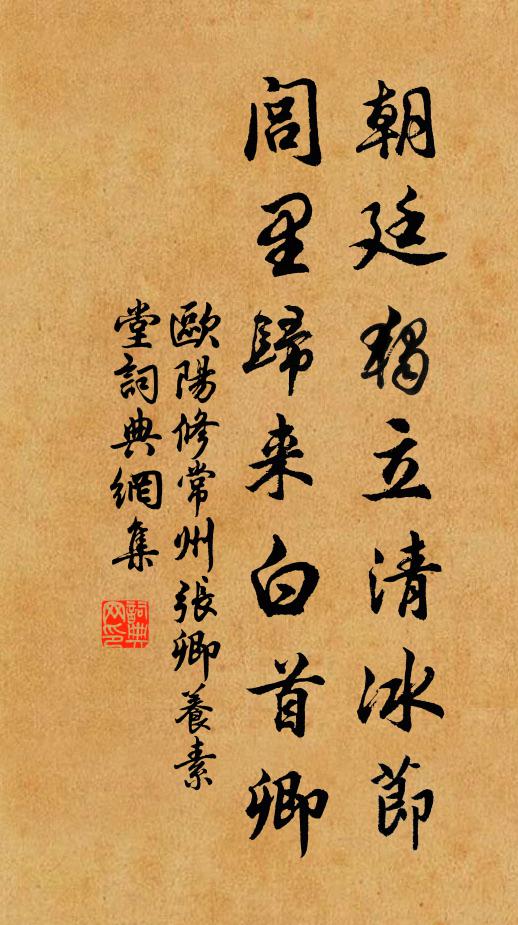 朝廷獨立清冰節
閭里歸来白首卿
歐陽修常州張卿養素
堂詞典網集
詞典
网印